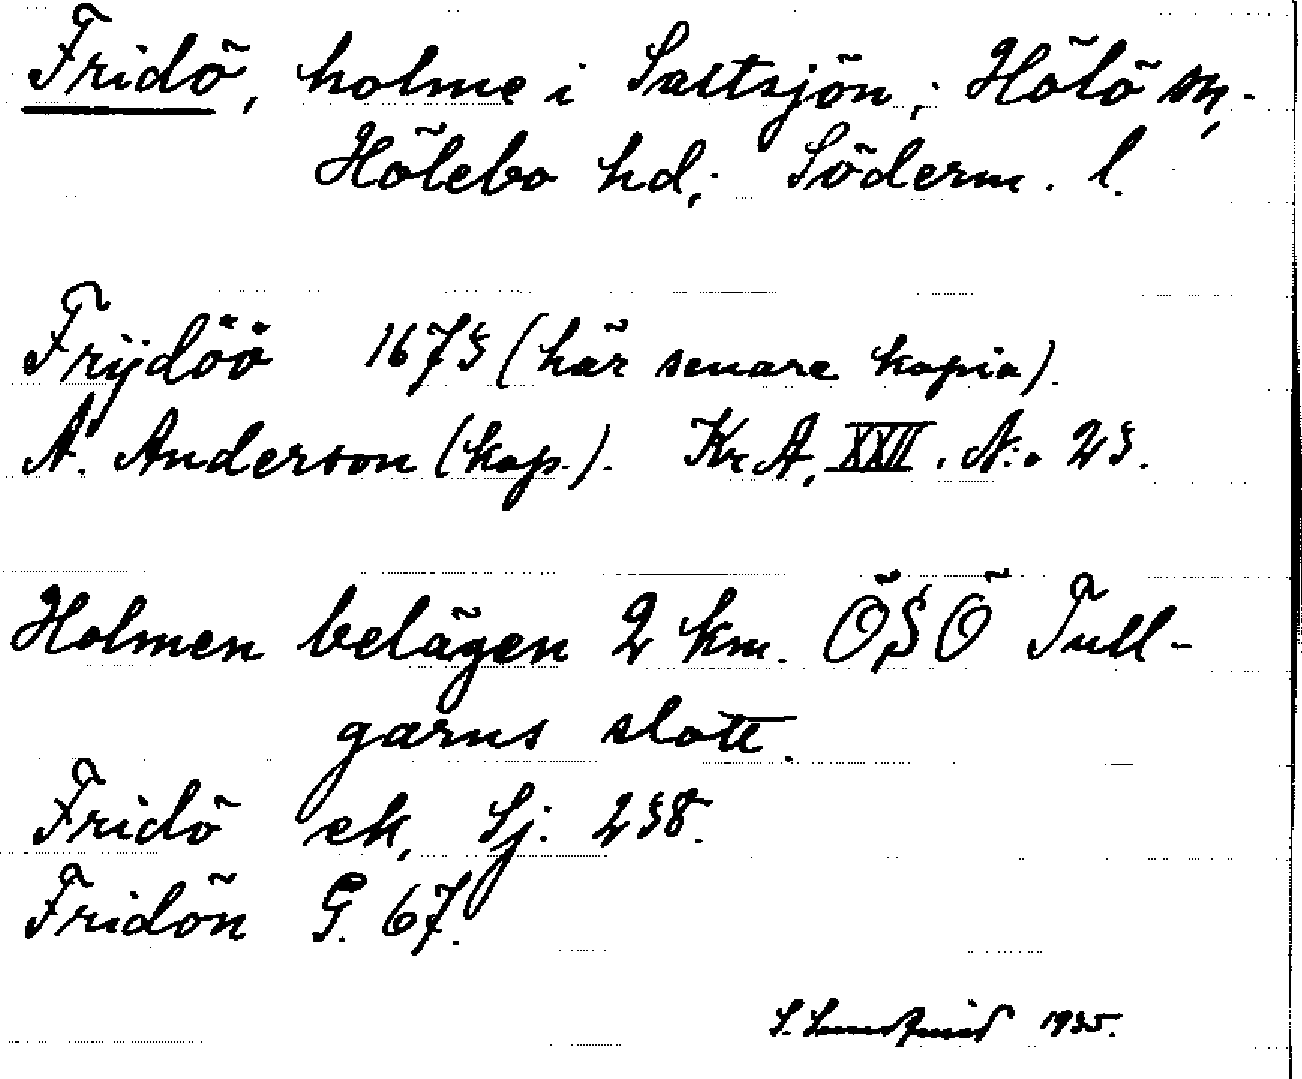 Fridö, holme i Saltsjön; Hölö sn,
Hölebo hd; Söderm. l.
Frijdöö 1673 (här senare kopia).
A. Anderson (kop.). Kr A, XXII. N:o 23.
Holmen belägen 2 km. ÖSÖ Tull-
garns slott.
Fridö ek, Sj. 238.
Fridön G. 67.
S. Lundqvist 1935.